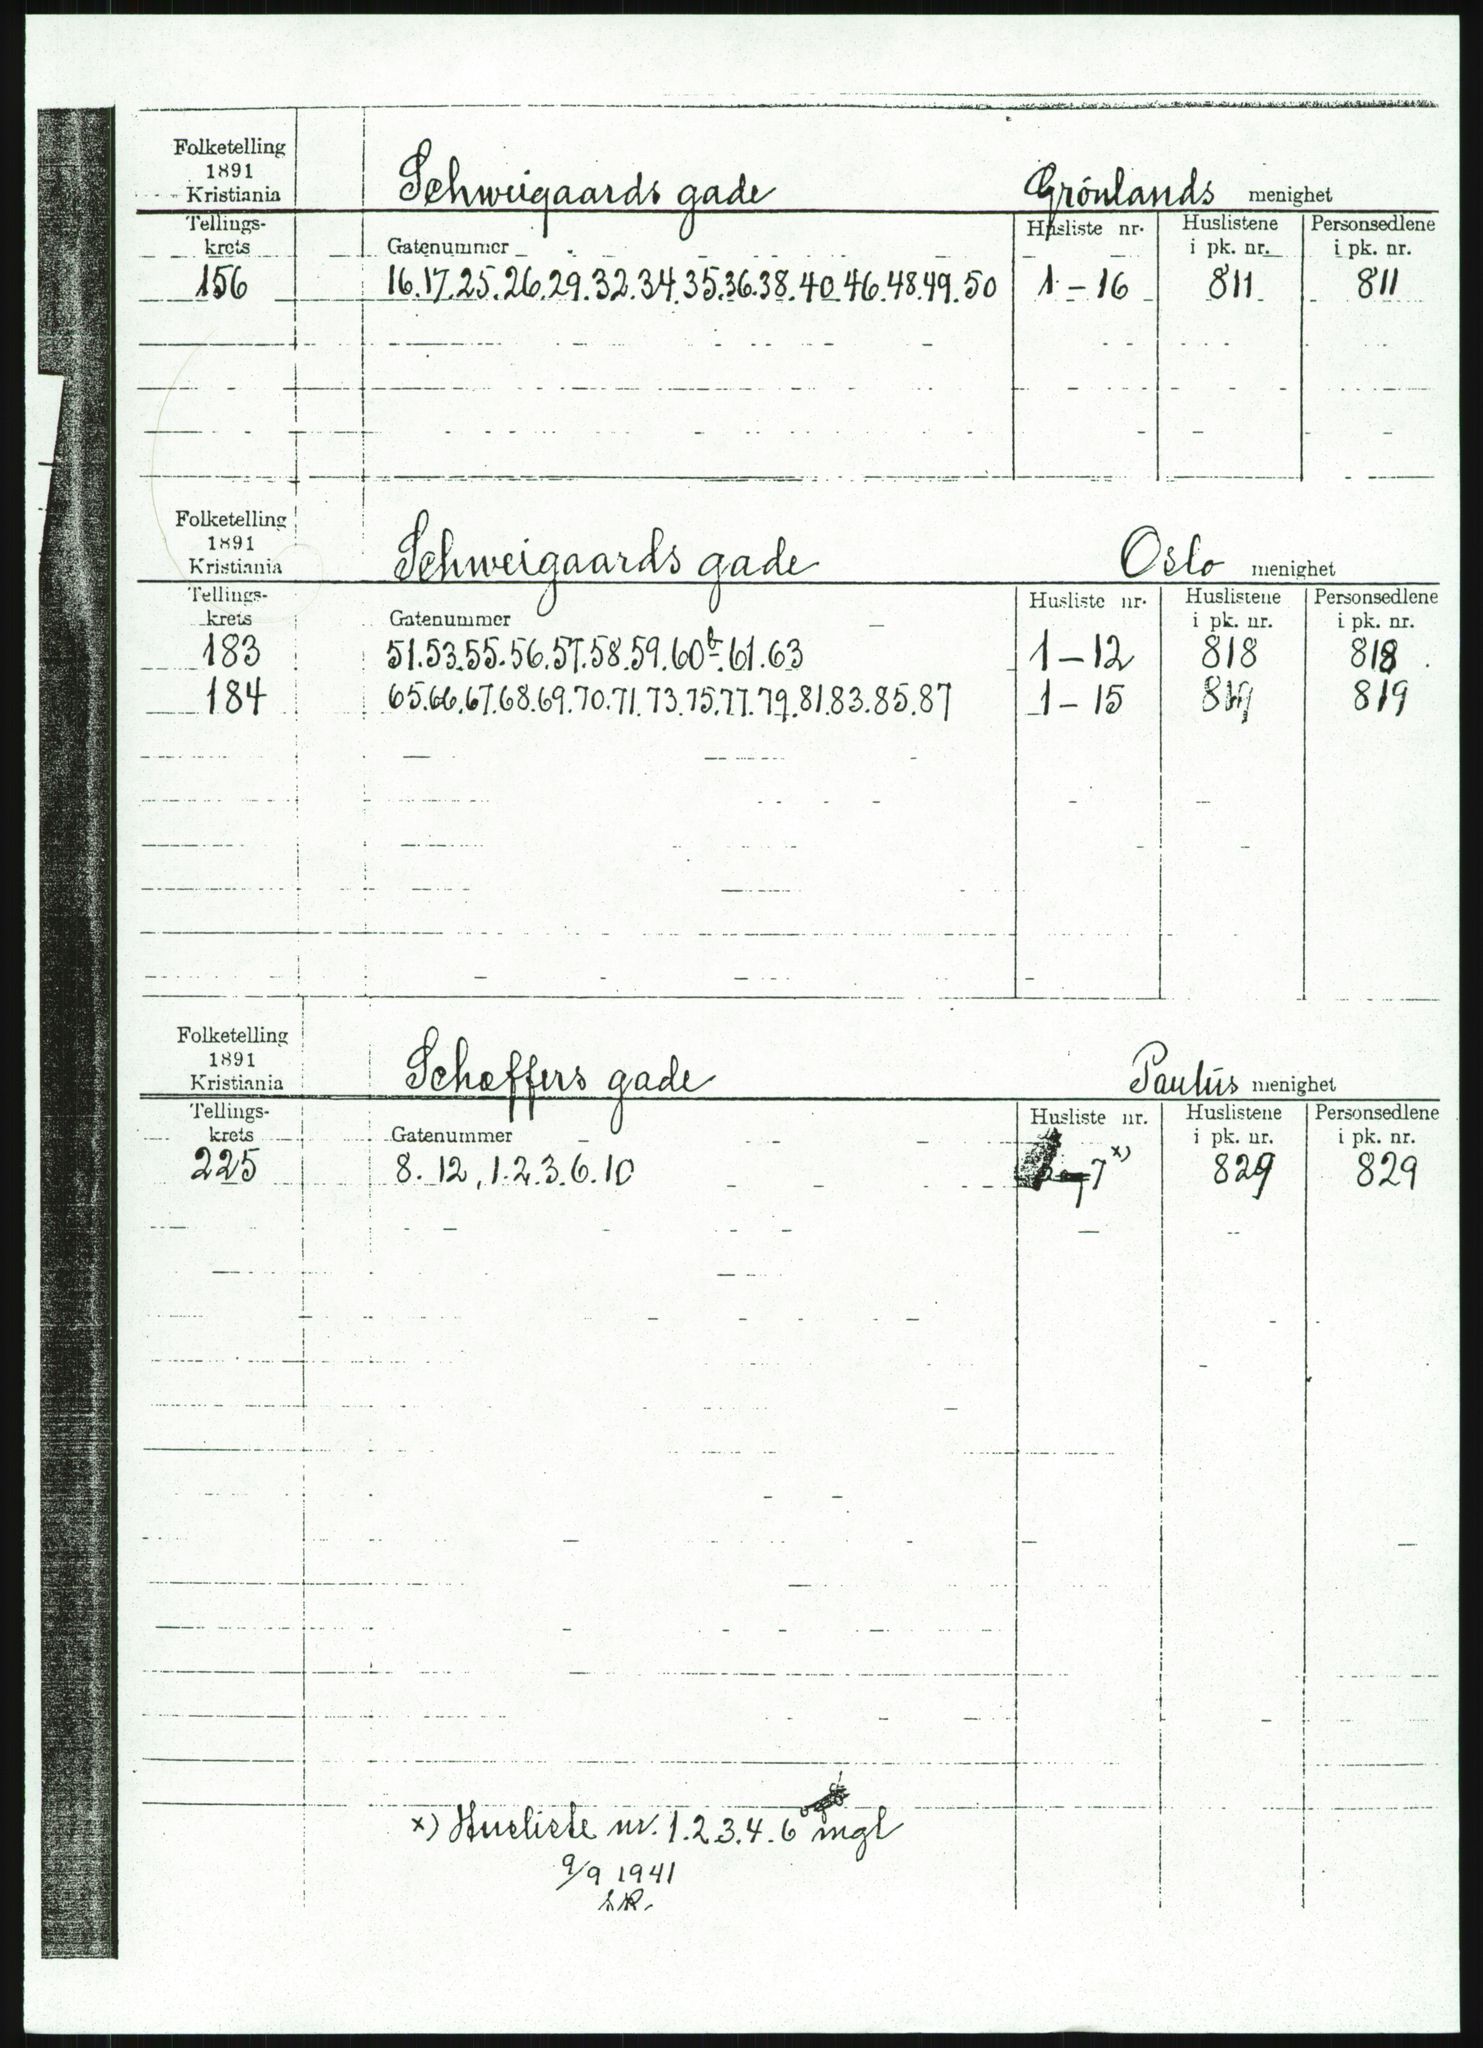 Folketelling
1891
Kristiania
Schweigaards gade
Grönlands menighet
Tellings-
krets
Gatenummer
Husliste nr.
Huslistene
i pk. nr.
Personsedlene
i pk. nr.
156 16.17.25.26.29.32.34.35.36.38.40.46.48.49.50 1-16 811 811
Folketelling
1891
Kristiania
Schweigaards gade
Oslo menighet
Tellings-
krets
Gatenummer
Husliste nr.
Huslistene
i pk. nr.
Personsedlene
i pk. nr.
183 51.53.55.56.57.58.59.60b.61.63 1-12 818 818
184 65.66.67.68.69.70.71.73.75.77.79.81.83.85.87 1-15 819 819
Folketelling
1891
Kristiania
Schæffers gade
Paulus menighet
Tellings-
krets
Gatenummer
Husliste nr.
Huslistene
i pk. nr.
Personsedlene
i pk. nr.
225 8.12,1.2.3.6.10 7x) 829 829
x) Husliste nr. 1.2.3.4.6 mgl
9/9 1941